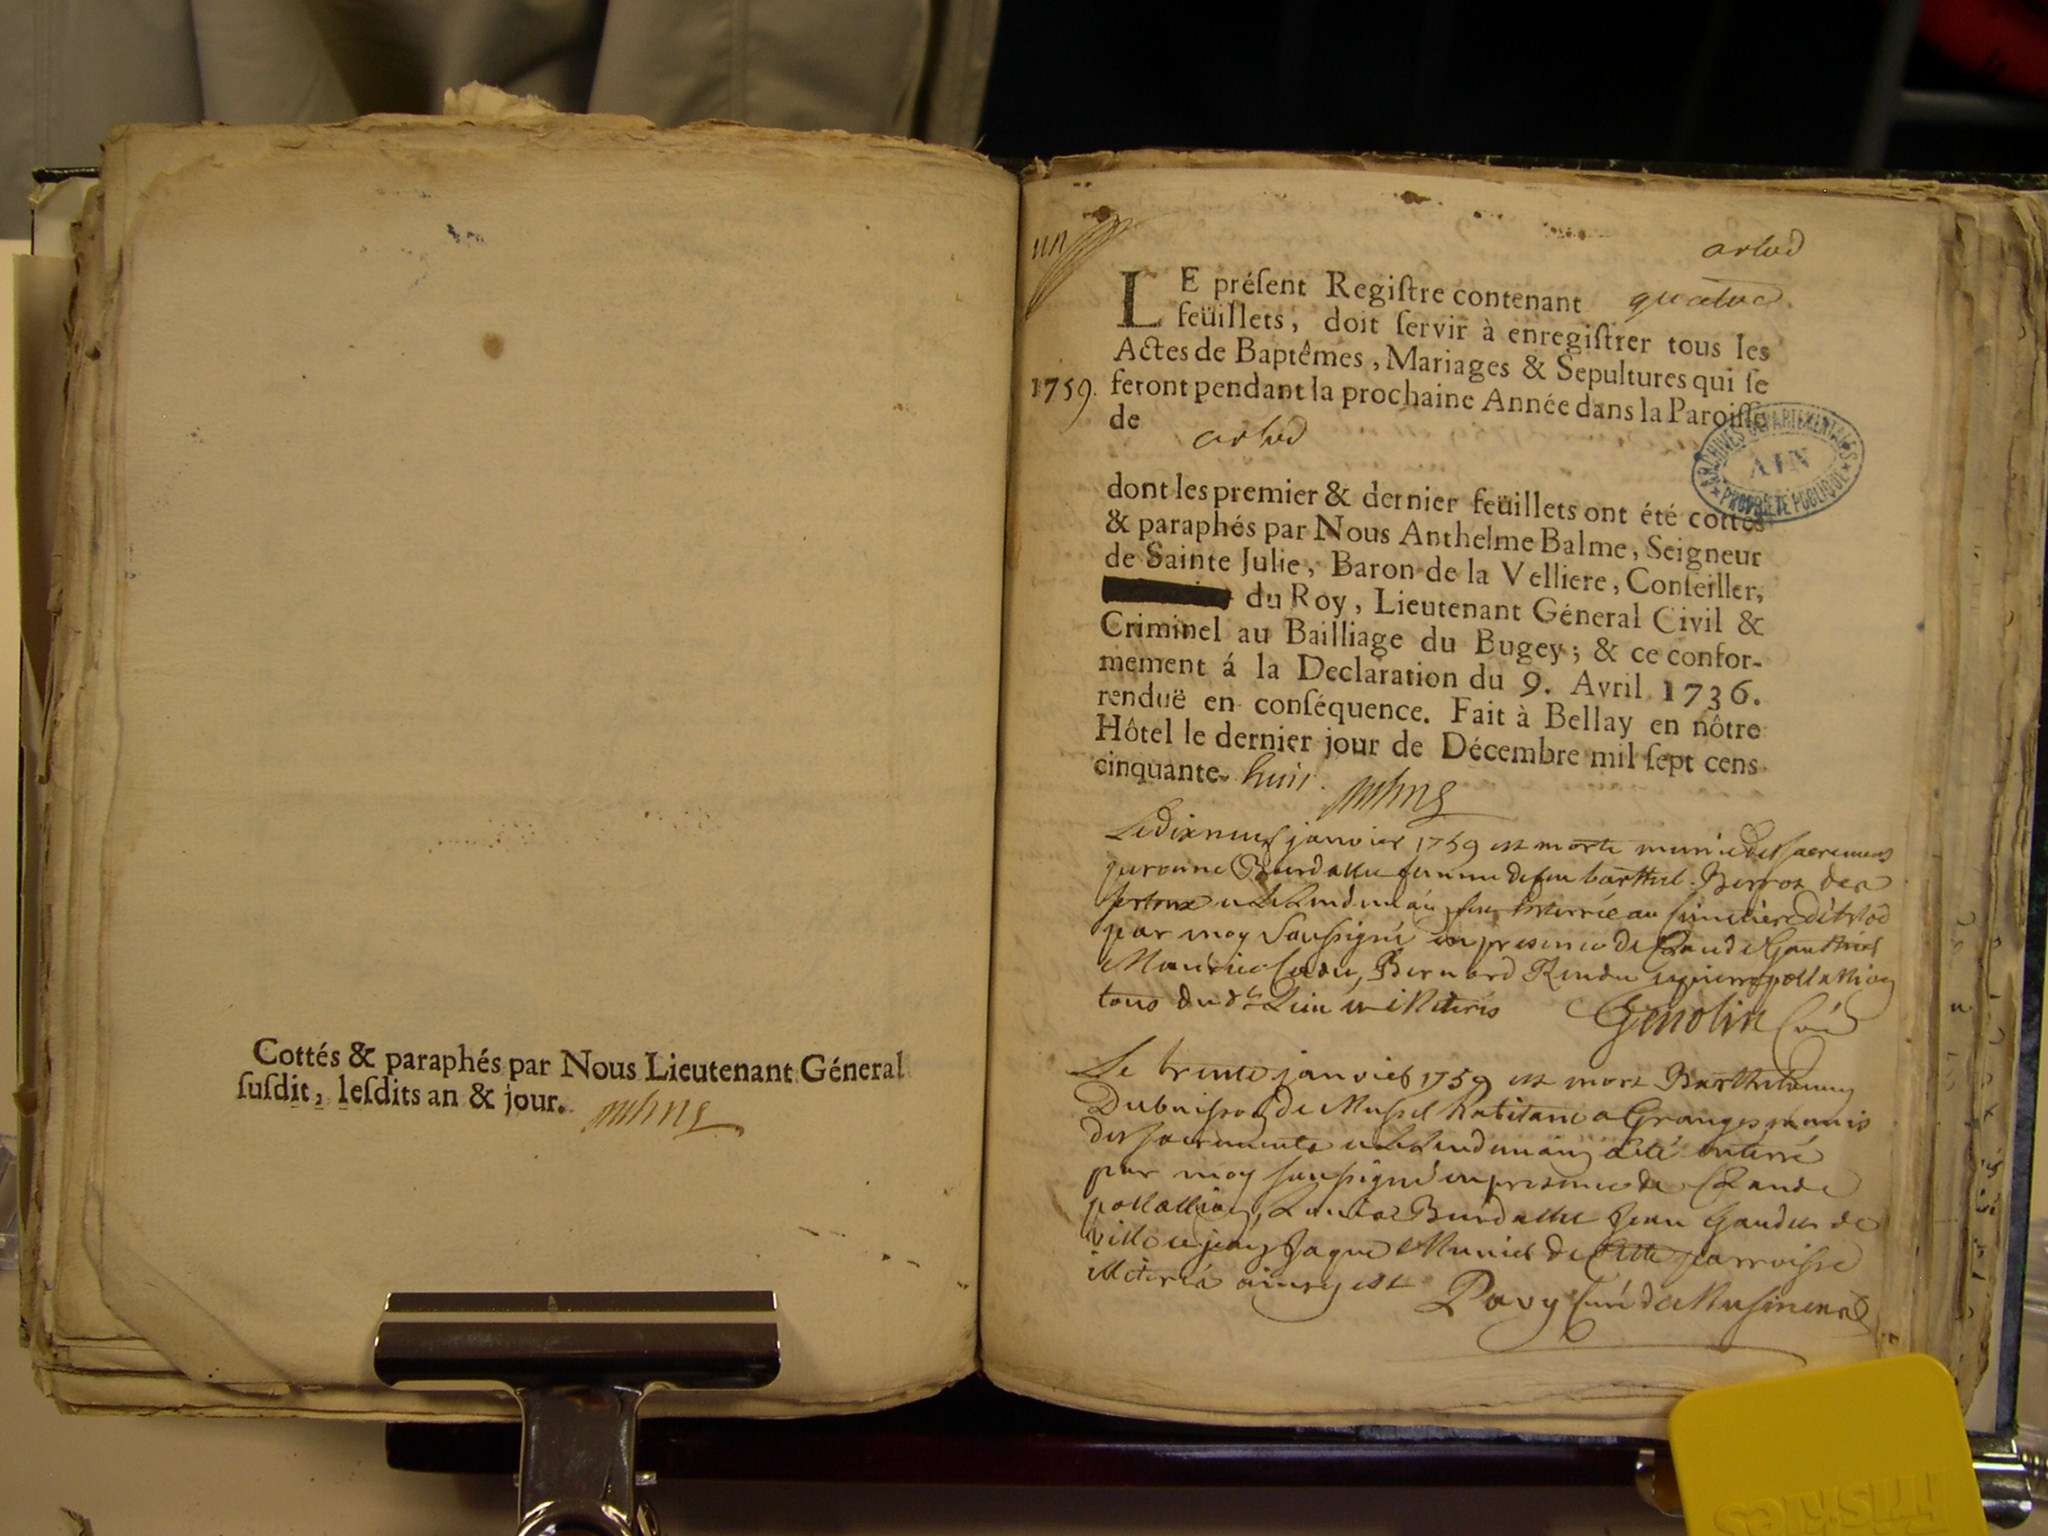 Cottés & paraphés par Nous Lieutenant Géneral
ſuſdit, leſdits an & jour.
un
arlod
LE préſent Regiſtre contenant quatre
feüillets, doit ſervir à enregiſtrer tous les
Actes de Baptêmes, Mariages & Sepultures qui ſe
1759. feront pendant la prochaine Année dans la Paroiſſe
de arlod
ARCHIVES DEPARTEMENTALES
AIN
PROPRIETE PUBLIQUE
dont les premier & dernier feüillets ont été cottés
& paraphés par Nous Anthelme Balme, Seigneur
de Sainte Julie, Baron de la Velliere, Conſeiller,
du Roy, Lieutenant Géneral Civil &
Criminel au Bailliage du Bugey; & ce confor-
mement á la Declaration du 9. Avril 1736.
renduë en conſéquence. Fait à Bellay en nôtre
Hôtel le dernier jour de Décembre mil ſept cens
cinquante-huit.
Le dixneuf janvier 1759 est morte munie des sacremens
femme de feu Berrox des
et le lendemain enterrée au cimetiere d'Arlod
par moy soussigné en presence de Claude Gauthier
Bernard Rendu
tous du dt Lieu illiterés Genolin Curé
Le trente janvier 1759 est mort Barthelemy
Dubuisson de Mussel habitant a Granges munis
des sacrements et le lendemain a été enterré
par moy soussigné en presence de Claude
Jean Gaudet de
ville Jaque Munier de cette parroisse
illiterés ainsy est Pavy Curé de Musinens